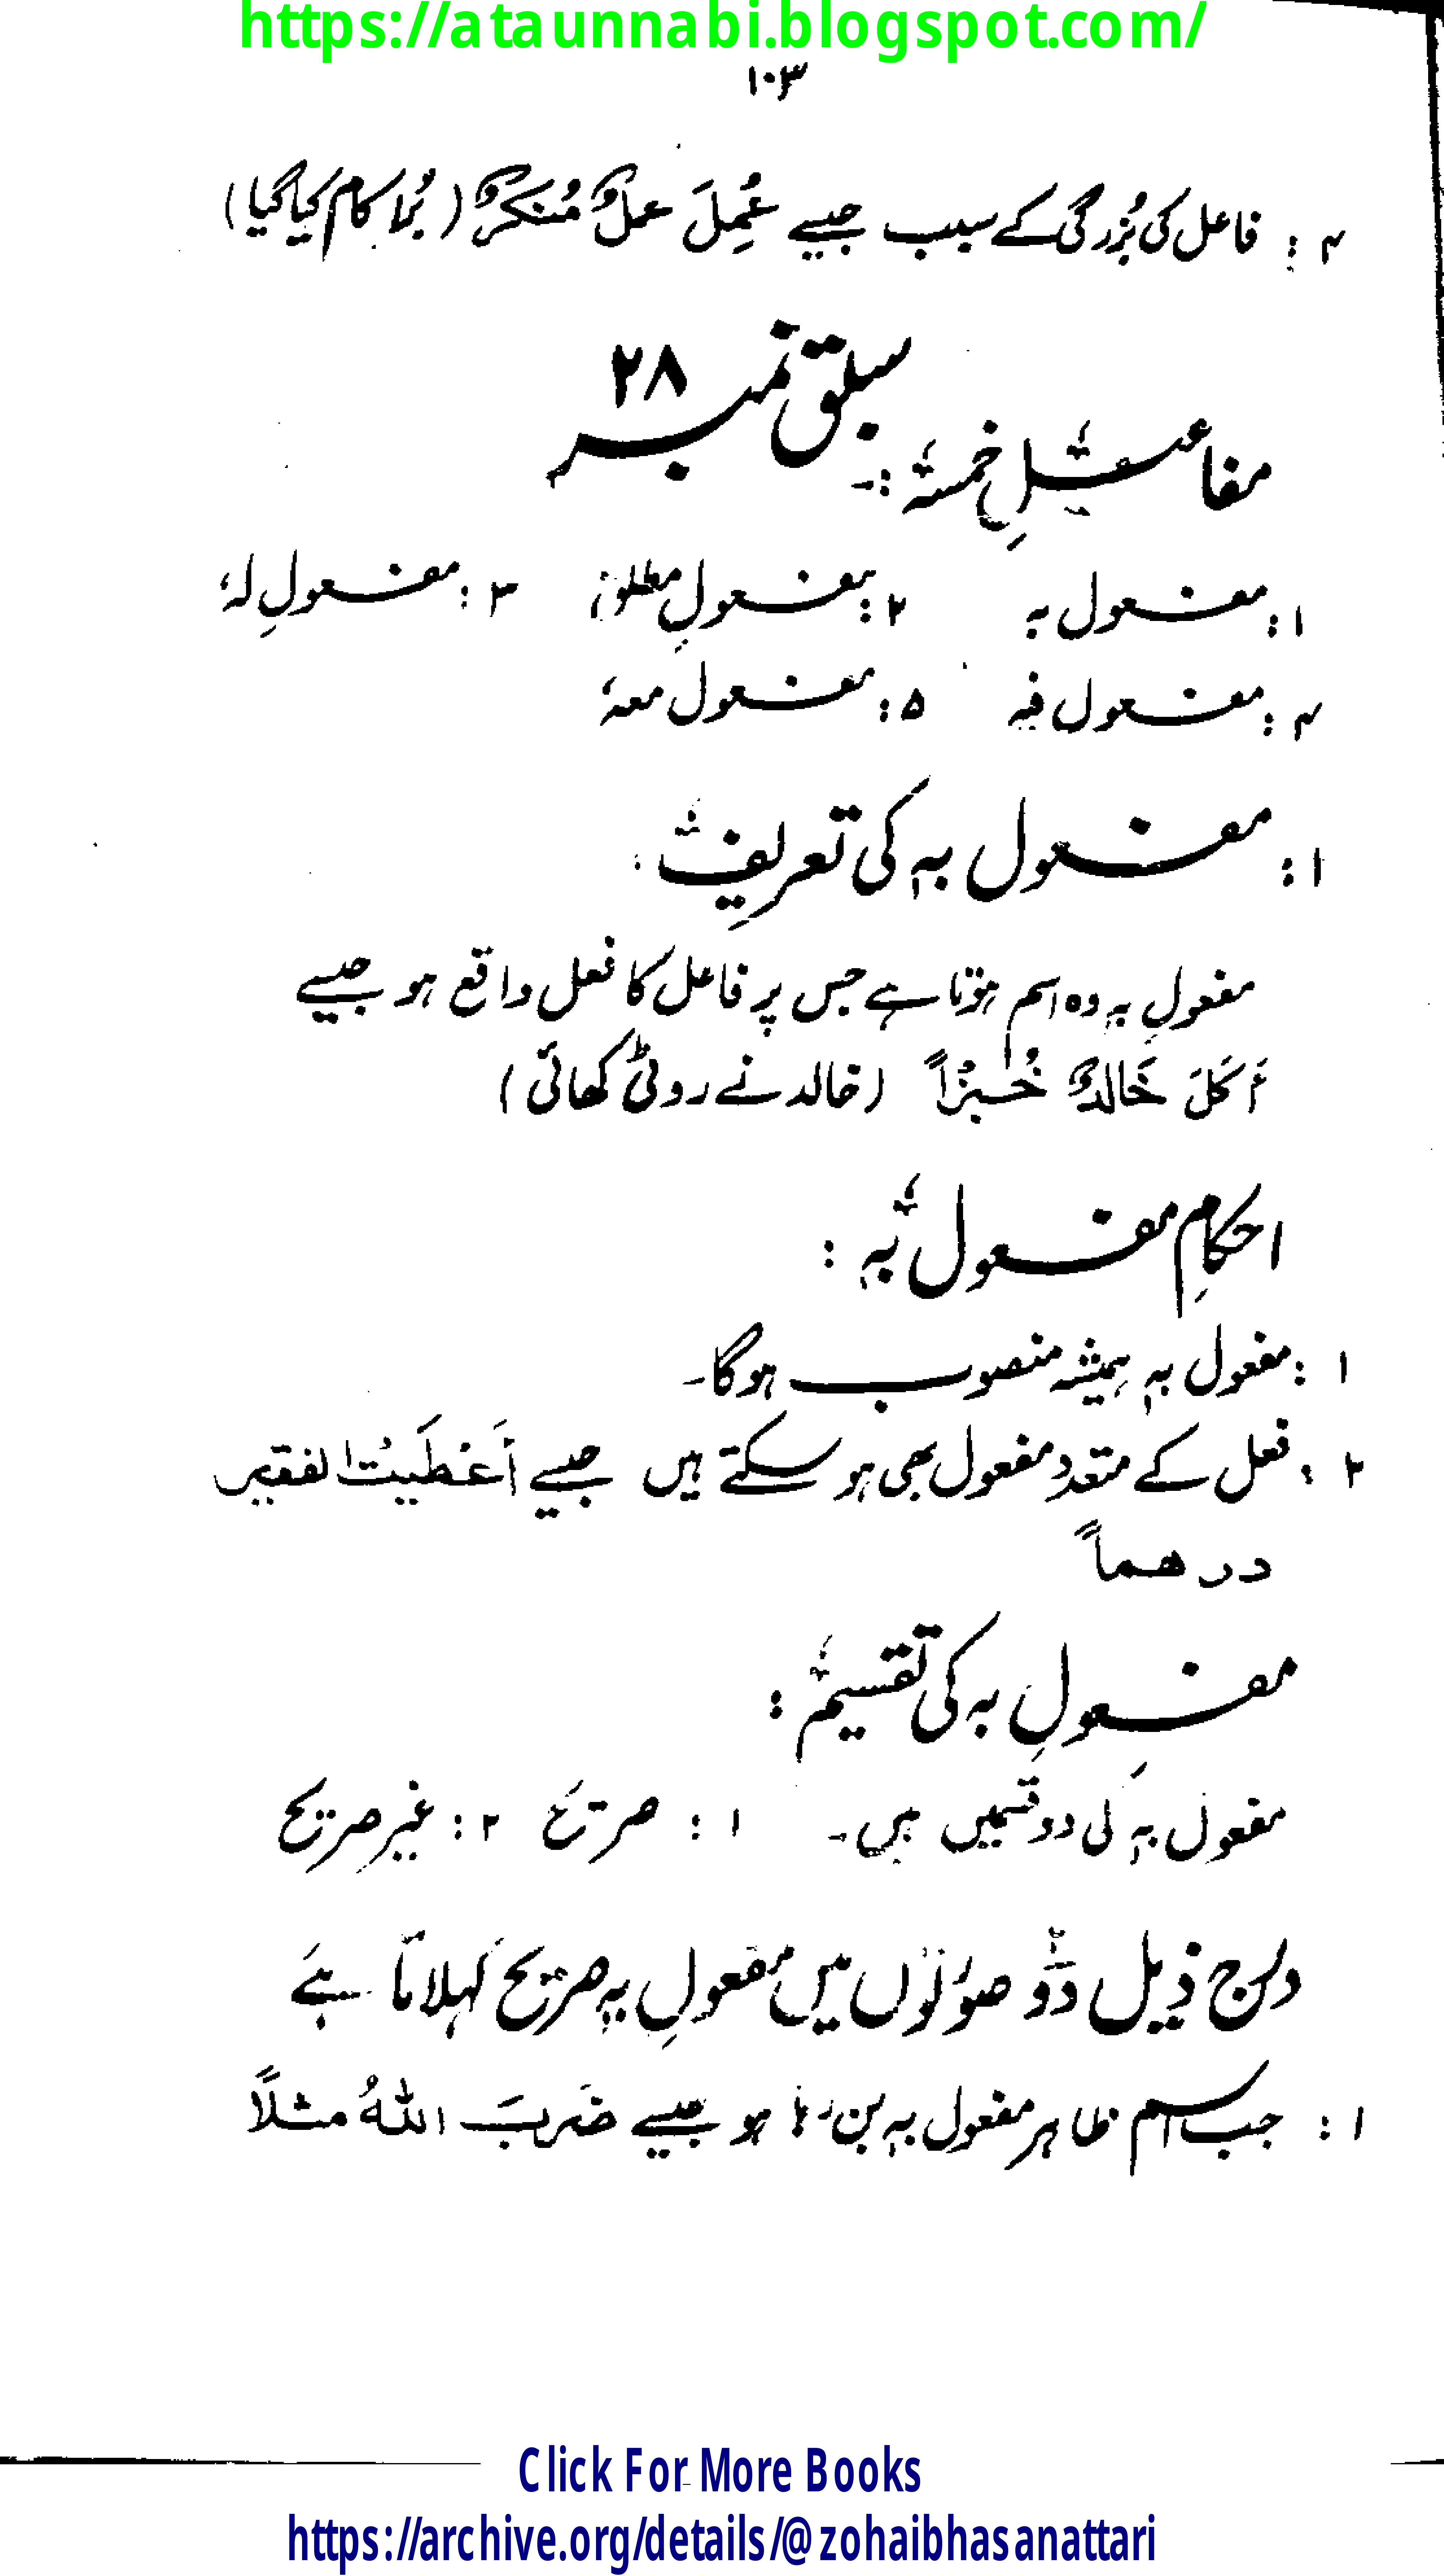 https://ataunnabi.blogspot.com/
۱۰۳
۴ : فاعل کی بُزرگی کے سبب جیسے عُمِلَ عملٌ مُنکَرٌ ( بُرا کام کیا گیا )
سبق نمبر ۲۸
مفاعیلِ خمسہ :-
۱ : مفعول بہ ۲ : مفعولِ مطلق ۳ : مفعولِ لہٗ
۴ : مفعول فیہ ۵ : مفعول معہٗ
۱ : مفعول بہٖ کی تعریف :
مفعولِ بہٖ وہ اسم ہوتا ہے جس پر فاعل کا فعل واقع ہو جیسے
أَكَلَ خَالدٌ خُبزًا ( خالد نے روٹی کھائی )
احکامِ مفعول بہٖ :
۱ : مفعول بہٖ ہمیشہ منصوب ہوگا۔
۲ : فعل کے متعدد مفعول بھی ہو سکتے ہیں جیسے أَعْطَيتُ الفقير
درهماً
مفعولِ بہ کی تقسیم :
مفعول بہٖ کی دو قسمیں ہیں۔ ۱ : صریح ۲ : غیر صریح
درج ذیل دو صورتوں میں مفعولِ بہٖ صریح کہلاتا ہے
۱ : جب اسم ظاہر مفعول بہٖ بن رہا ہو جیسے ضَربَ اللهُ مثلاً
Click For More Books
https://archive.org/details/@zohaibhasanattari